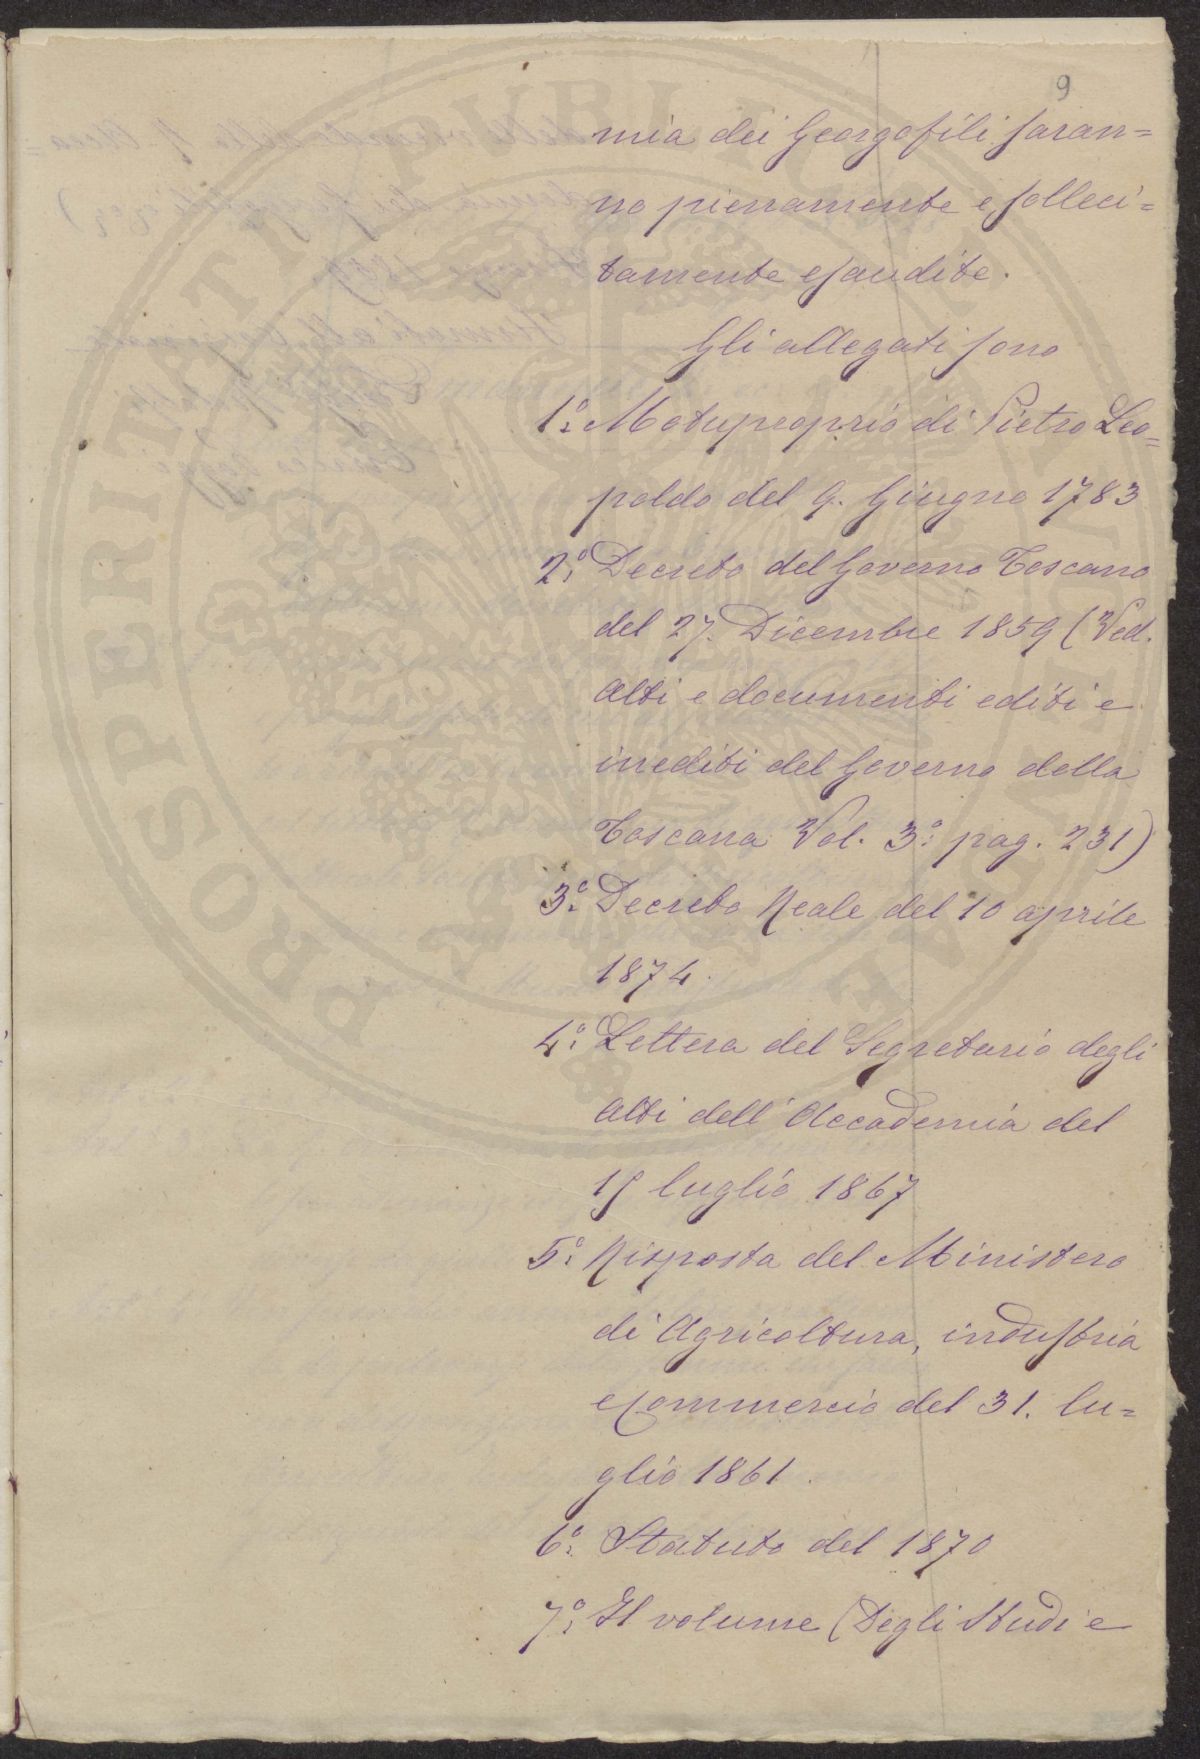 9
mia dei Georgofili saran=
no pienamente e solleci=
tamente esaudite.
Gli allegati sono
1º. Motuproprio di Pietro Leo=
poldo del 9. Giugno 1783
2º. Decreto del Governo Toscano
del 27. Dicembre 1859 (Ved.
Atti e documenti editi e
inediti del Governo della
Toscana Vol. 3º. pag. 231)
3º. Decreto Reale del 10 aprile
1874.
4º. Lettera del Segretario degli
Atti dell'Accademia del
luglio 1867
5º. Risposta del Ministero
di Agricoltura, industria
e Commercio del 31. lu=
glio 1861.
6º. Statuto del 1870
7º. Il volume (Degli Studi e
PROSPERITATI PVBLICAE AVGENDAE